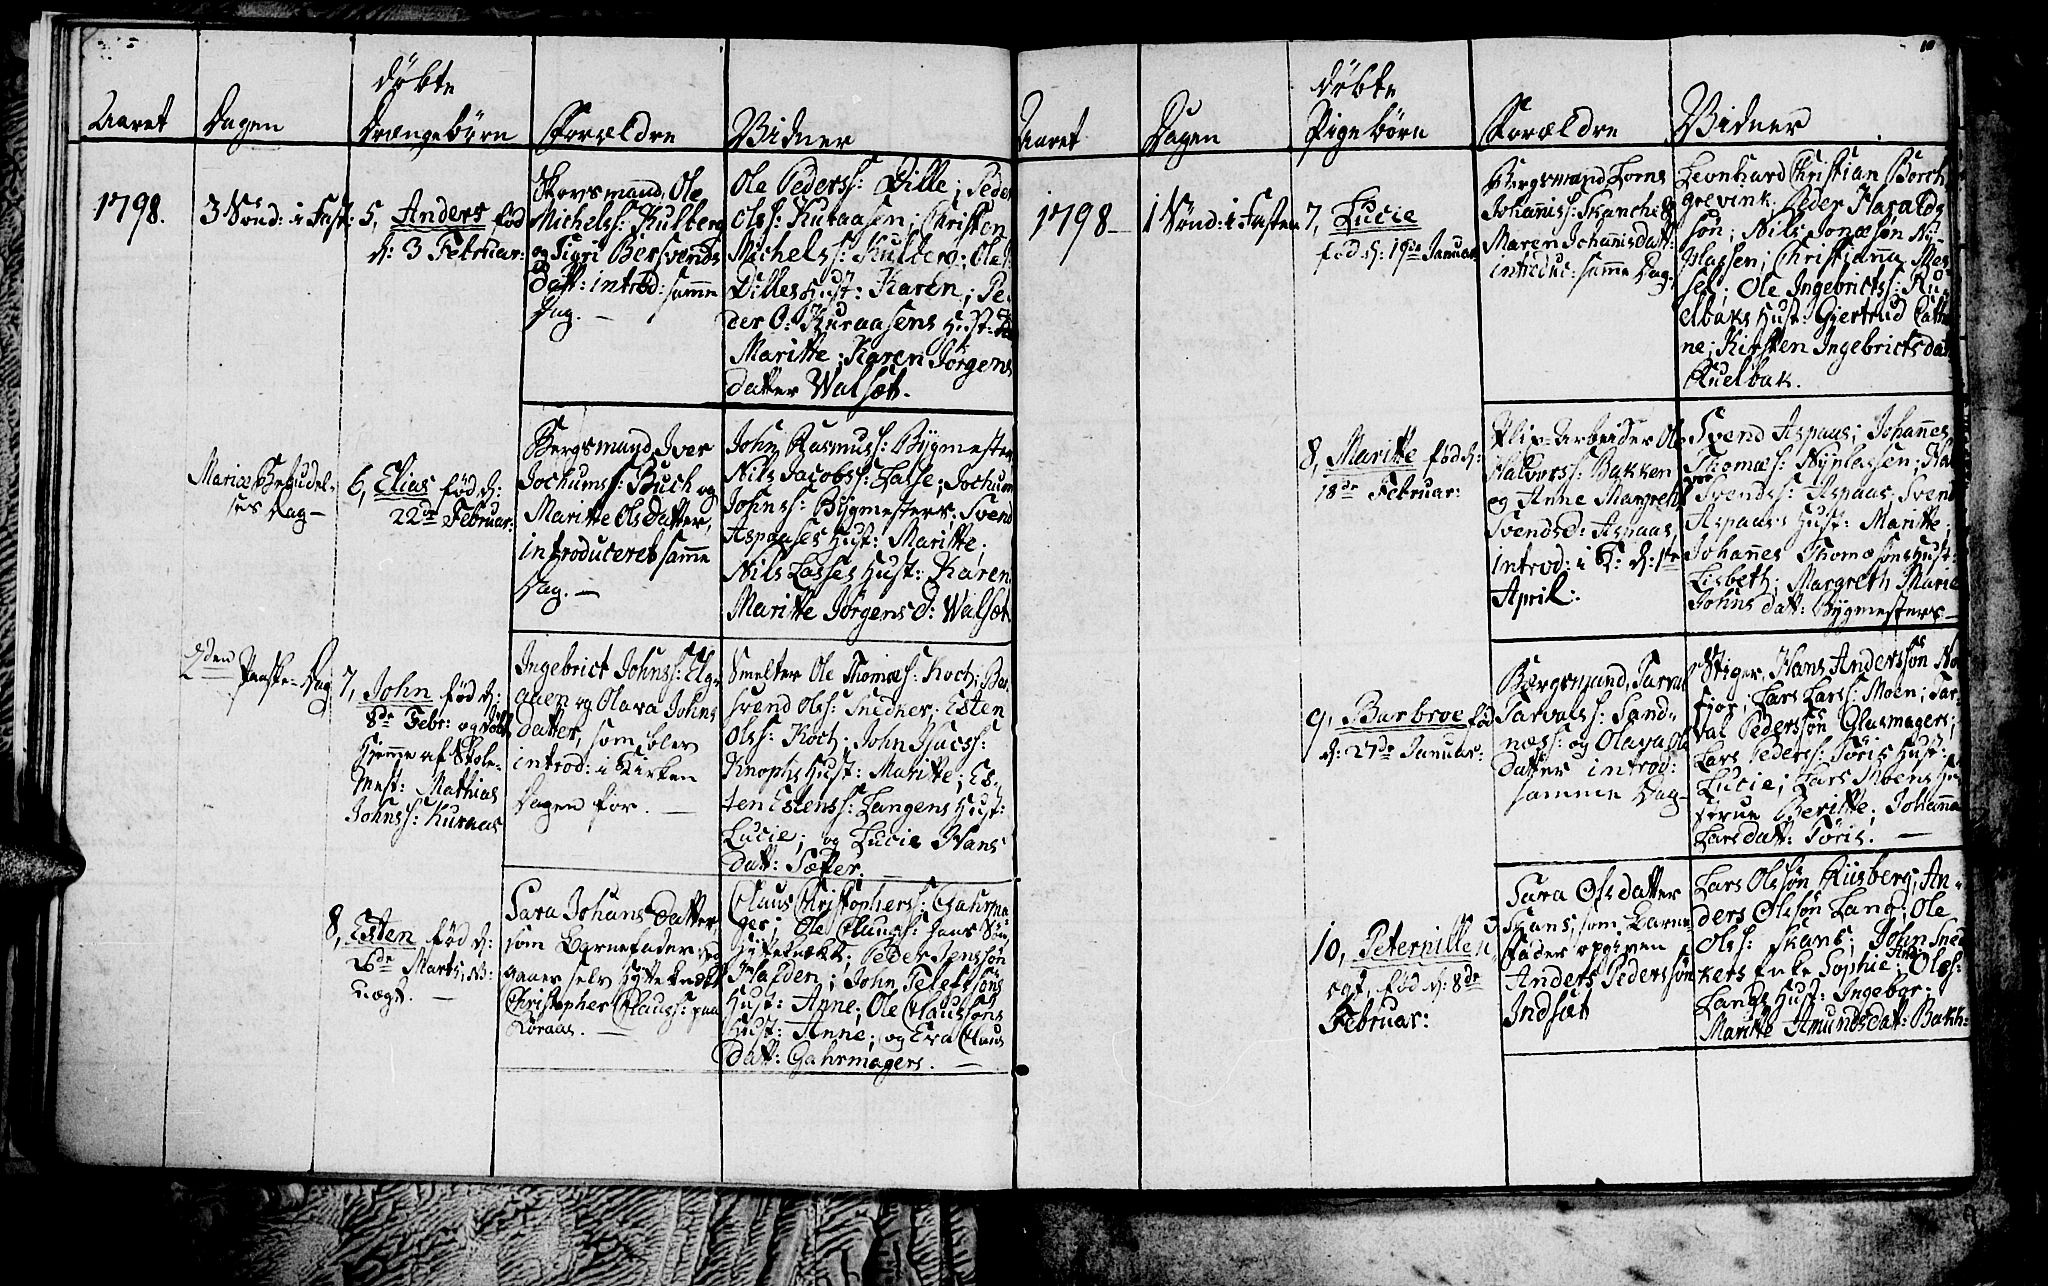 Aaret
Dagen
døbte
Drængebørn
Forældre
Vidner
1798.
3 Sønd: i Fast:
5, Anders fød
d: 3 Februar:
Michelss: Kulberg
og Sigri Bersvends
datt: introd: samme
Dag. —
Ole Pederss: Dille; Peder
Olss: Kuraasen; Christen
Michelss: Kulberg; Ole
Dilles Hust: Karen; Pe-
der O: Kuraasens Hust:
Maritte; Karen Jørgens
datter Walsæt.
Mariæ Bebudel-
ses Dag —
6, Elias fød d:
22de Februar:
Bergsmand Iver
Jochumss: Buch og
Maritte Olsdatter,
introduceret samme
Dag. —
John Rasmuss: Bygmester
Nils Jacobss: Lasse; Jochum
Johnss: Bygmesters; Svend
Aspaases Hust: Maritte;
Nils Lasses Hust: Karen
Maritte Jørgensd: Walsæt
2den Paaske-Dag
7, John fød d:
8de Febr: og døbt
hjemme af Skole-
Mest: Mathias
Johnss: Kuraas
Ingebrict Johnss: Elg-
aaen og Olava Johns
datter, som blev
introd: i Kirken
Dagen før. —
Smelter Ole Thomæs: Koch; Ber-
svend Olss: Snedker; Esten
Olss: Koch; John Isacss:
Knophs Hust: Maritte; Es-
ten Estenss: Langens Hust:
Lucie; og Lucie Hans
datt: Sæter. —
8, Esten fød d:
6de Marts, u-
ægt. —
Sara Johansdatter,
som Barnefader ud
gaaer selv Hytteknegt
Christopher Clauss: paa
Røraas. —
Claus Christophers: Gahrma-
ger; Ole Clauss: hans Søn
Hyttekneckt; Peder Jenssøn
Malden; John Telefsøns
Hust: Anne; Ole Claussøns
Hust: Anne; og Eva Claus
datt: Gahrmagers. —
10
Aaret
Dagen
døbte
Pigebørn
Forældre
Vidner
1798 —
1 Sønd: i Fasten
7, Lucie
fød d: 19de Januar
Bergsmand Lorns
Johannis: Skanche &
Maren Johannisdatt:
introduc: samme Dag.
Leonhard Christian Borch-
grevink; Peder Haralds
søn; Nils Jonæsøn Ny-
plassen; Christianna Mes-
sel; Ole Ingebrictss: Ku-
elbaks Hust: Giertrud Catri-
ne; Kirsten Ingebrictsdatt:
Kuelbak.
8, Maritte fød d:
18de Februar:
Flip-Arbeider Ole
Halvorss: Bakken
og Anne Margreth
Svendsd: Aspaas,
introd: i K: d: 1ste
April:
Svend Aspaas; Johannes
Thomæs: Nyplassen; Hal
vor Svendss: Aspaas; Svend
Aspaas Hust: Maritte;
Johannes Thomæsøns Hust:
Lisbeth; Margreth Maria
Johnsdatt: Bygmesters —
9, Barbroe fød
d: 27de Januar:
Bergsmand Tarval
Tarvalss: Sand-
næss: og Olava Ols
datter introd:
samme Dag —
Stiger Hans Anderssøn No-
fjor; Lars Larss: Moen; Tar-
val Pederssøn Glasmagers;
Lars Pederss: Føris Hust:
Lucie; Lars Moens Hu-
strue Beritte; Johanna
Larsdatt: Føris. —
10, Peternille u-
egt, fød d: 8de
Februar:
Sara Olsdatter
Skans, som Barne
fader opgiven
Anders Pederssøn
Indsæt
Lars Olssøn Riisberg; An-
ders Olssøn Lang; Ole
Olss: Skans; John Sned
kers Enke Sophie; Olss:
Langs Hust: Ingebor;
Maritte Amundsdat: Bakk: